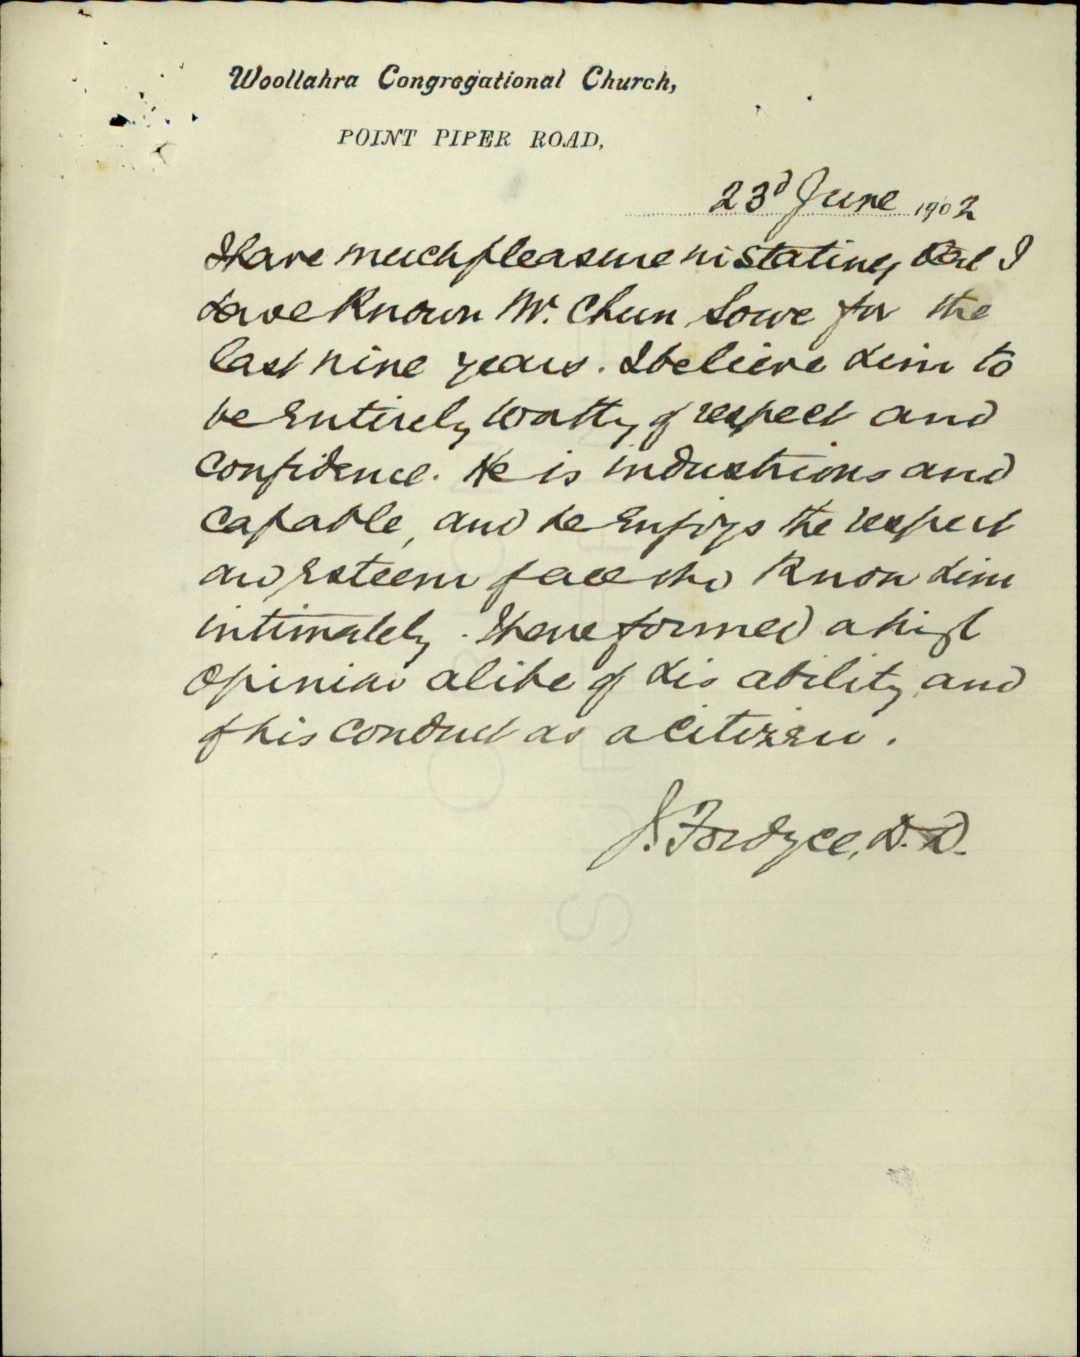 Woollahra Congregational Church,
POINT PIPER ROAD,
23d June 1902
I have much pleasure in stating that I
have known Mr. Chun Lowe for the
last nine years. I believe him to
be entirely worthy of respect and
confidence. He is industrious and
capable, and he enjoys the respect
and esteem of all who know him
intimately. I have formed a high
opinion alike of his ability and
of his conduct as a citizen.
J. Fordyce, D.D.